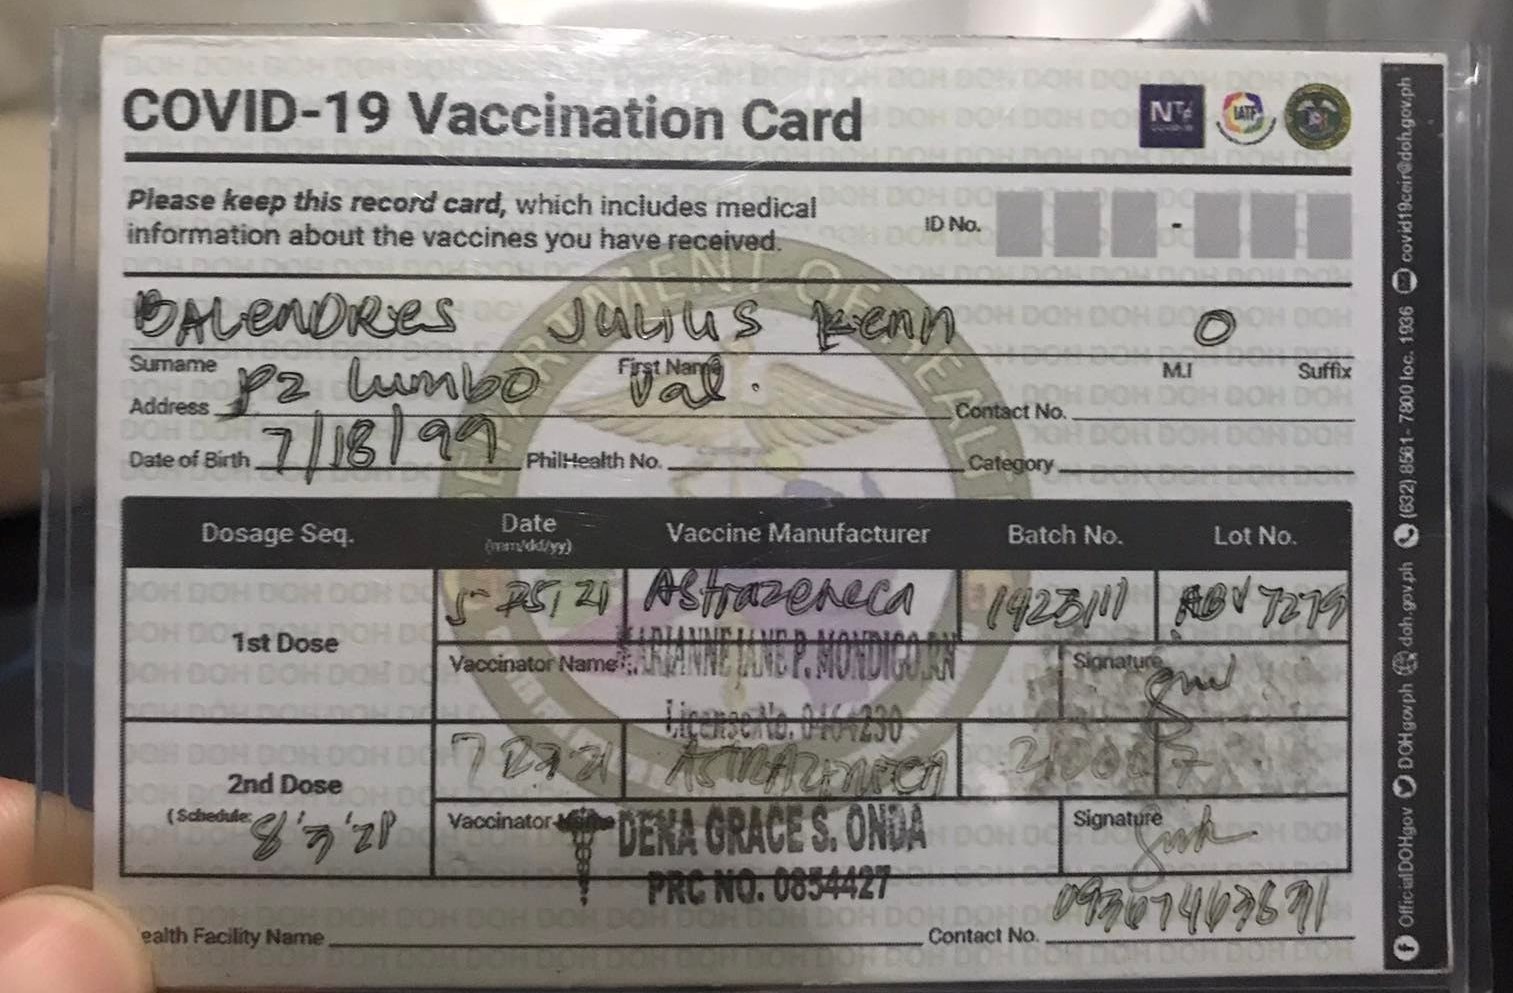 COVID-19 Vaccination Card
Please keep this record card, which includes medical
information about the vaccines you have received.
ID No. -
BALENDRES JULIUS Kenn O
Surname First Name M.I Suffix
Address P2 Lumbo Val. Contact No.
Date of Birth 7/18/99 PhilHealth No. Category
Dosage Seq. Date (mm/dd/yy) Vaccine Manufacturer Batch No. Lot No.
1st Dose 21 Astrazeneca ABV 7279
Vaccinator Name MARIANNE JANE P. MONDIGO RN Signature
License No. 0464230
2nd Dose 21 ASTRAZENECA
(Schedule:
Vaccinator DENA GRACE S. ONDA Signature
PRC NO. 0854427
ealth Facility Name Contact No.
OfficialDOHgov DOHgovph doh.gov.ph (632) 8561-7800 loc. 1936 covid19ceir@doh.gov.ph